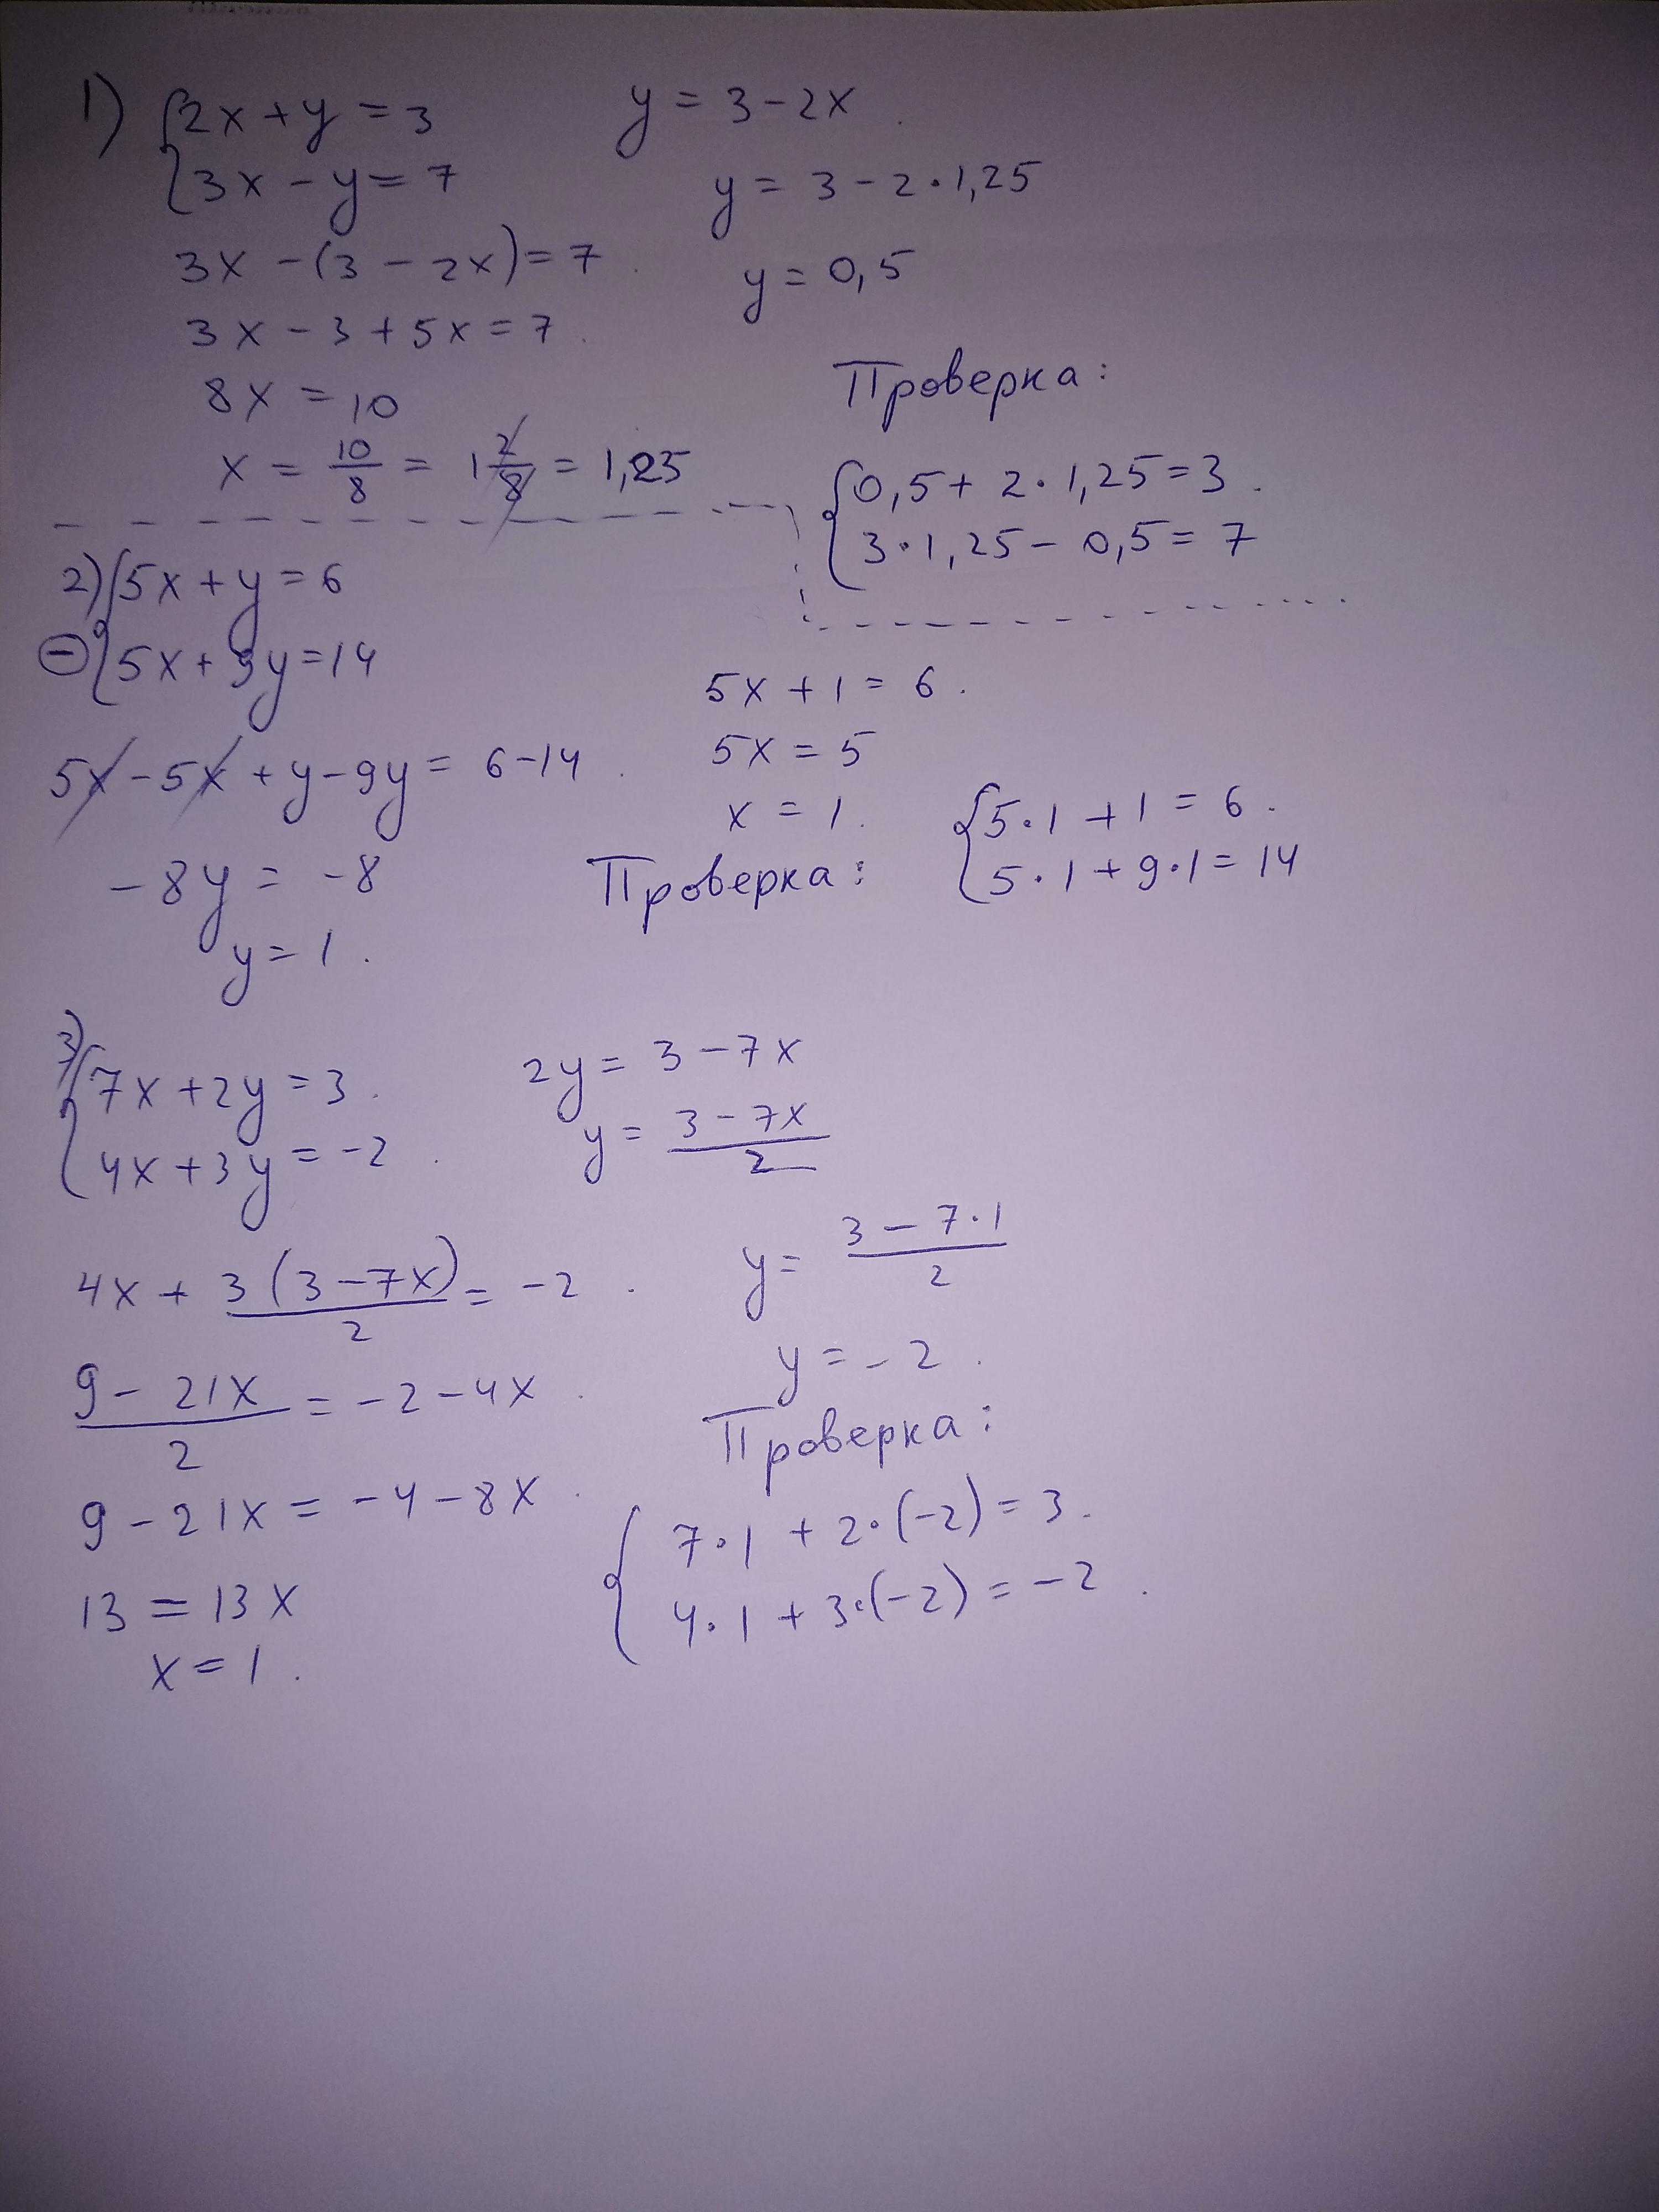 1) {2x + y = 3
3x - y = 7
3x - (3 - 2x) = 7.
3x - 3 + 5x = 7.
8x = 10
x = 10/8 = 1 2/8 = 1,25
y = 3 - 2x.
y = 3 - 2·1,25
y = 0,5
Проверка:
{0,5 + 2·1,25 = 3.
3·1,25 - 0,5 = 7
2) {5x + y = 6
⊖ 5x + 9y = 14
5x - 5x + y - 9y = 6 - 14.
-8y = -8
y = 1.
5x + 1 = 6.
5x = 5
x = 1.
Проверка:
{5·1 + 1 = 6.
5·1 + 9·1 = 14
3) {7x + 2y = 3.
4x + 3y = -2.
4x + 3(3 - 7x)/2 = -2.
9 - 21x/2 = -2 - 4x.
9 - 21x = -4 - 8x.
13 = 13x
x = 1.
2y = 3 - 7x
y = 3 - 7x/2
y = 3 - 7·1/2
y = -2.
Проверка:
{7·1 + 2·(-2) = 3.
4·1 + 3·(-2) = -2.